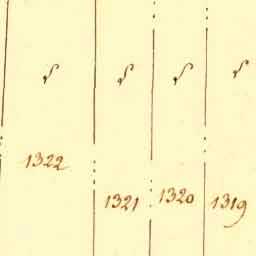 1322
1321
1320
1319